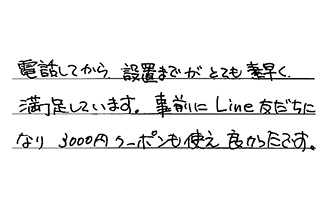 電話してから、設置までがとても素早く、
満足しています。事前にLine友だちに
なり 3000円クーポンも使え良かったです。